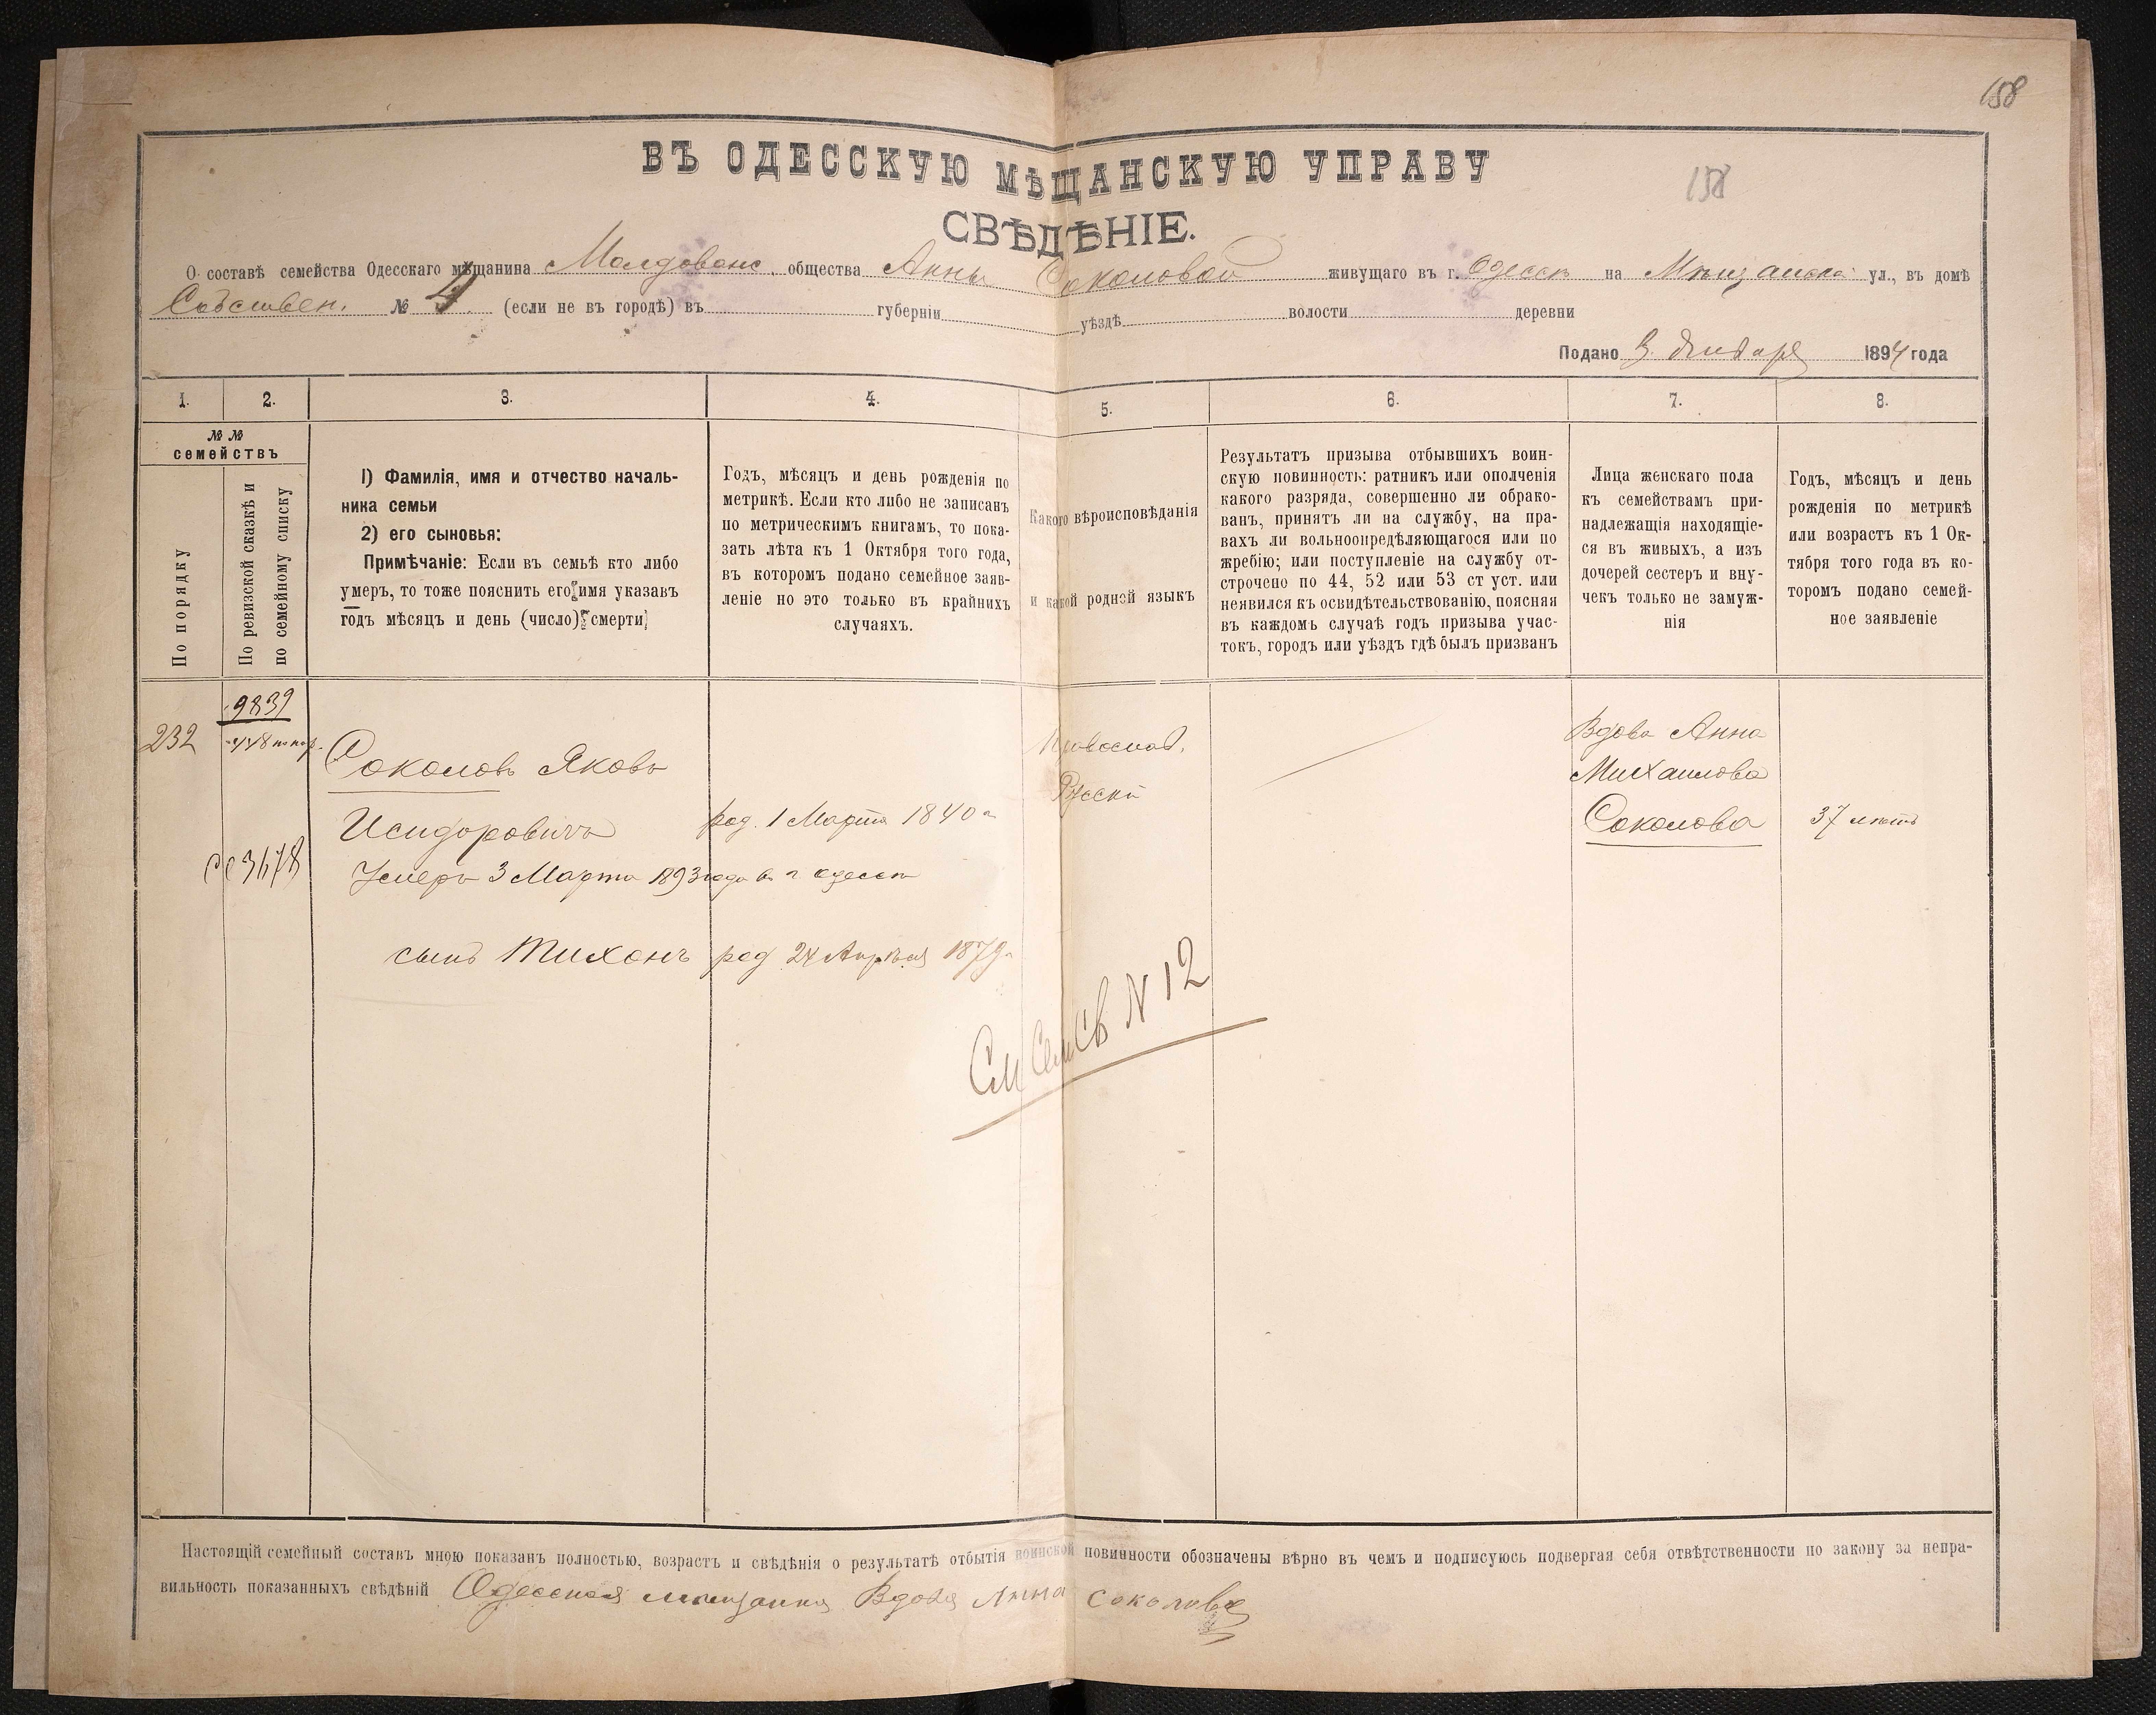 158
ВЪ ОДЕССКУЮ МѢЩАНСКУЮ УПРАВУ
158
СВѢДѢНІЕ.
О составѣ семейства Одесскаго мѣщанина Молдованс. общества Анны Соколовой живущаго въ г. Одессѣ на Мѣщанска ул., въ домѣ
Собствен. № 4 (если не въ городѣ) въ губерніи уѣздѣ волости деревни
Подано 3 Января 1894 года
1. 2. 3. 4. 5. 6. 7. 8.
№ №
семействъ
По порядку
По ревизской сказкѣ и
по семейному списку
1) Фамилія, имя и отчество началь-
ника семьи
2) его сыновья:
Примѣчаніе: Если въ семьѣ кто либо
умеръ, то тоже пояснить его имя указавъ
годъ мѣсяцъ и день (число) смерти
Годъ, мѣсяцъ и день рожденія по
метрикѣ. Если кто либо не записанъ
по метрическимъ книгамъ, то пока-
зать лѣта къ 1 Октября того года,
въ которомъ подано семейное заяв-
леніе но это только въ крайнихъ
случаяхъ.
Какого вѣроисповѣданія
и какой родной языкъ
Результатъ призыва отбывшихъ воин-
скую повинность: ратникъ или ополченія
какого разряда, совершенно ли обрако-
ванъ, принятъ ли на службу, на пра-
вахъ ли вольноопредѣляющагося или по
жребію; или поступленіе на службу от-
строчено по 44, 52 или 53 ст уст. или
неявился къ освидѣтельствованію, поясняя
въ каждомъ случаѣ годъ призыва учас-
токъ, городъ или уѣздъ гдѣ былъ призванъ
Лица женскаго пола
къ семействамъ при-
надлежащія находящіе-
ся въ живыхъ, а изъ
дочерей сестеръ и вну-
чекъ только не замуж-
нія
Годъ, мѣсяцъ и день
рожденія по метрикѣ
или возрастъ къ 1 Ок-
тября того года въ ко-
торомъ подано семей-
ное заявленіе
9839
232
Соколовъ Яковъ
Исидоровичъ род. 1 Марта 1840 г
Умеръ 3 Марта 1893 года в г Одессѣ
сынъ Тихонъ род 24 Апрѣля 1879 г
3678
Православ.
Русскій
Вдова Анна
Михаилова
Соколова 37 лѣтъ
См Сем Св N 12
Настоящій семейный составъ мною показанъ полностью, возрастъ и свѣдѣнія о результатѣ отбытія воинской повинности обозначены вѣрно въ чемъ и подписуюсь подвергая себя отвѣтственности по закону за непра-
вильность показанныхъ свѣдѣній Одесская мѣщанка Вдова Анна Соколова